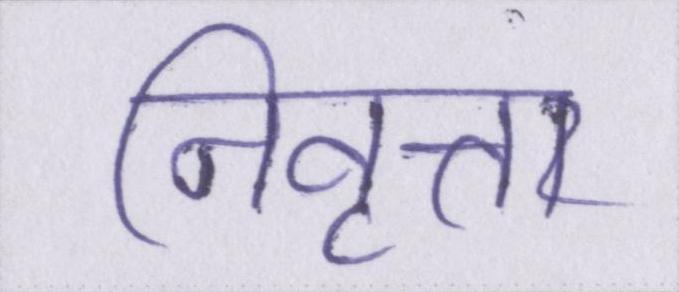 निवृत्ता